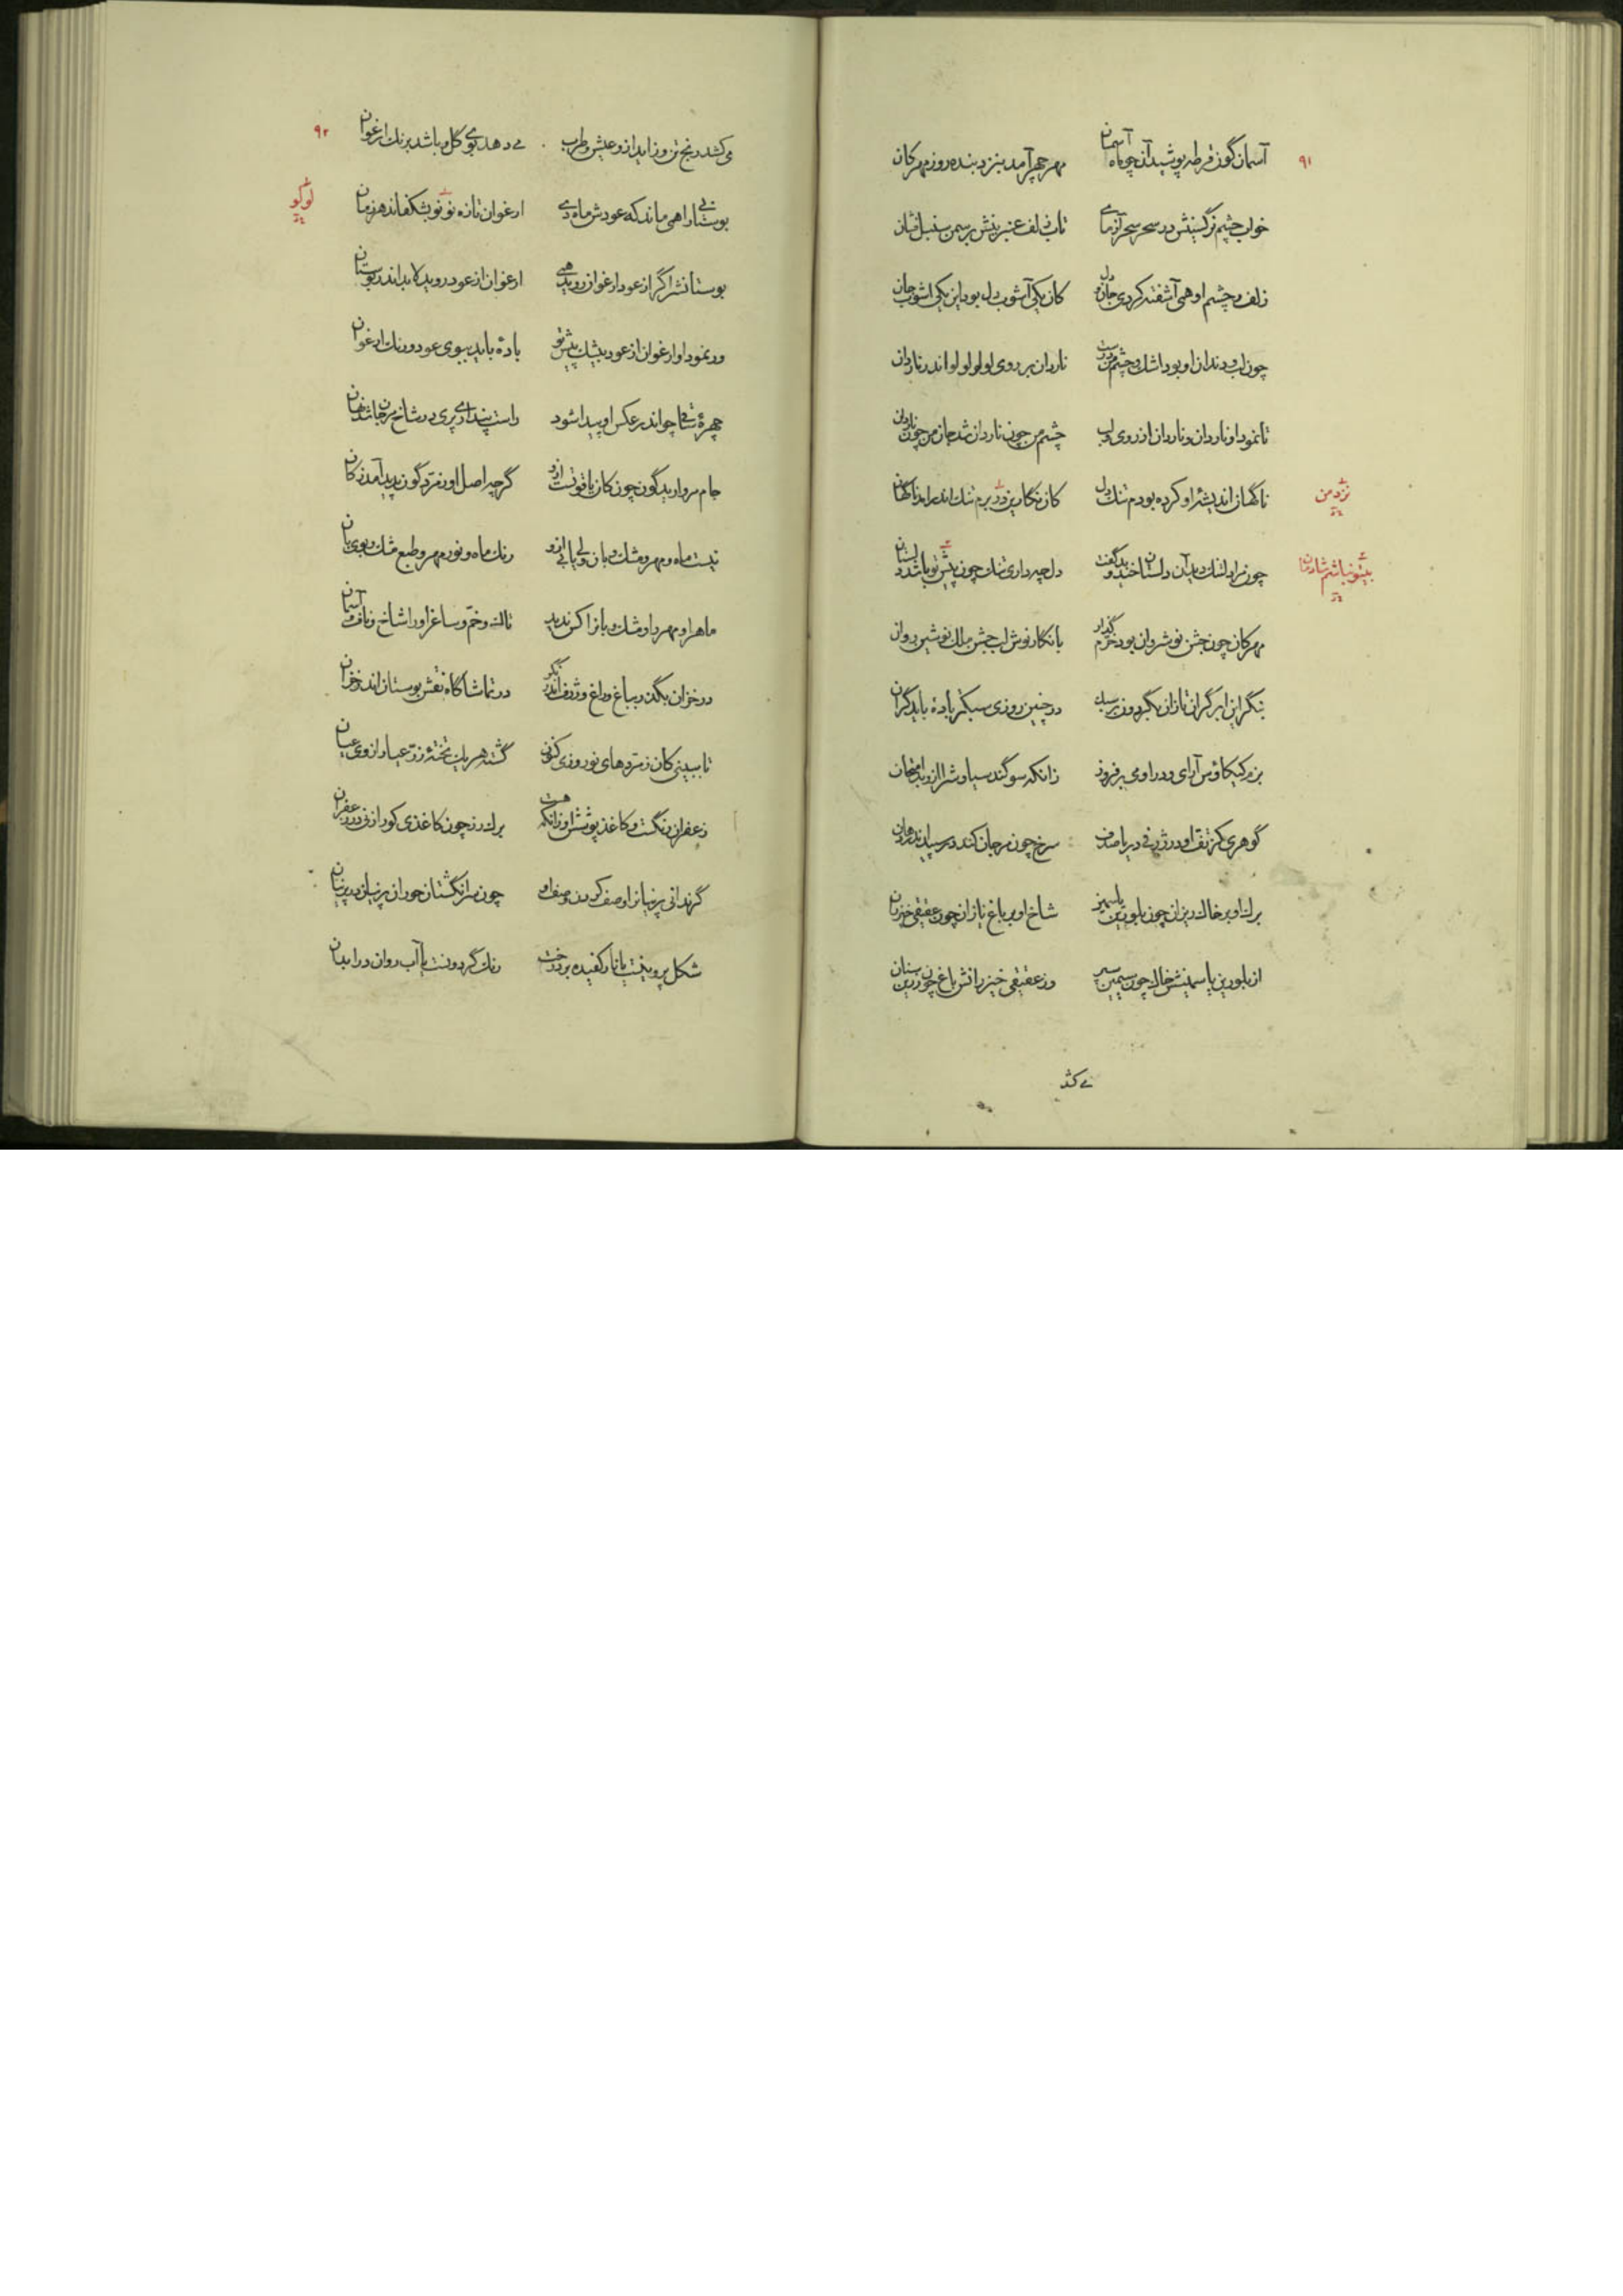 ۹۱
آسمان گون قرطه پوشید آن چو ماه آسمان مهر چهر آمد بنزد بنده روز مهرکان
خواب چشم نرگسینش در سحر سحر آزمای تاب زلف عنبرینش بر سمن سنبل فشان
زلف و چشم او همی آشفته کردی جان و دل کان یکی آشوب دل بود این یکی آشوب جان
چون لب و دندان او بود اشک و چشم من درست ناردان بر روی لولو لولو اندر ناردان
تا نمود او ناردان و نار دان از روی و لب چشم من چون ناردان شد جان من چون نار دان
ناگهان اندیشهٔ او کرده بودم تنک دل کان نگارین در برم تنک اندر آمد ناگهان
نزد من
چون مرا دلتنک دید آن دلستان خندید و گفت دل چه داری تنک چون پیش تو باشد دلستان
بیتو نباشم شادمان
مهرکان چون جشن نوشروان بود خرم گذار با نگار نوش لب جشن ملک نوشین روان
بنگر این ابر گران تازان بگردون بر سبک در چنین روزی سبکتر بادهٔ باید گران
بزم کیکاوس آرای و در او می برفروز زانکه سوگند سیاوش را ازو بد امتحان
گوهری کز تف او در ژرف دریا صدف سرخ چون مرجان کند در سپید اندر دهان
برک او بر خاک ریزان چون بلورین یاسمین شاخ او بر باغ یازان چون عقیقی خیزران
از بلورین یاسمینش خاک چون سیمین سپر وز عقیقی خیزرانش باغ چون زرین سنان
می کشد
۹۲
می کشد رنج تن و زاید ازو عیش و طرب می دهد بوی گل و باشد برنک ارغوان
بوستانی را همی ماند که عودش ماه دی ارغوان تازه نو نو بشکفاند هر زمان
لوکو
بوستانش را گر از عود ارغوان روید همی ارغوان از عود روید لابد اندر بوستان
ور نمود او ارغوان از عود بیشک پیش تو بادهٔ باید ببوی عود و رنک ارغوان
چهرهٔ ساقی چو اندر عکس او پیدا شود راست پنداری پری در شاخ مرجان شد نهان
جام مروارید گون چون کان یاقوتست ازو گرچه اصل او زمرد گون پدید آمد ز کان
نیست ماه و مهر و مشک و بان ولی یابی ازو رنک ماه و نور مهر و طبع مشک و بوی بان
ماه را و مهر را و مشک و بان را کس ندید تاک و خم و ساغر او را شاخ و ناف و آسمان
در خزان بگذر بباغ و راغ و ژرف اندر نگر در تماشاگاه نقش بوستان اندر خزان
تا ببینی کان زمردهای نوروزی کنون گشته هر یک تختهٔ زر عیار از وی عیان
زعفران رنگست و کاغذ پوشش او زانکه هست برک رز چون کاغذی کو را زنی در زعفران
گر ندانی پرنیان را وصف کردن وصف او چون سر انگشتان حوران پرنیان در پرنیان
شکل پروینست یا نار کفیده بر درخت رنک گردونست یا آب روان در آبدان